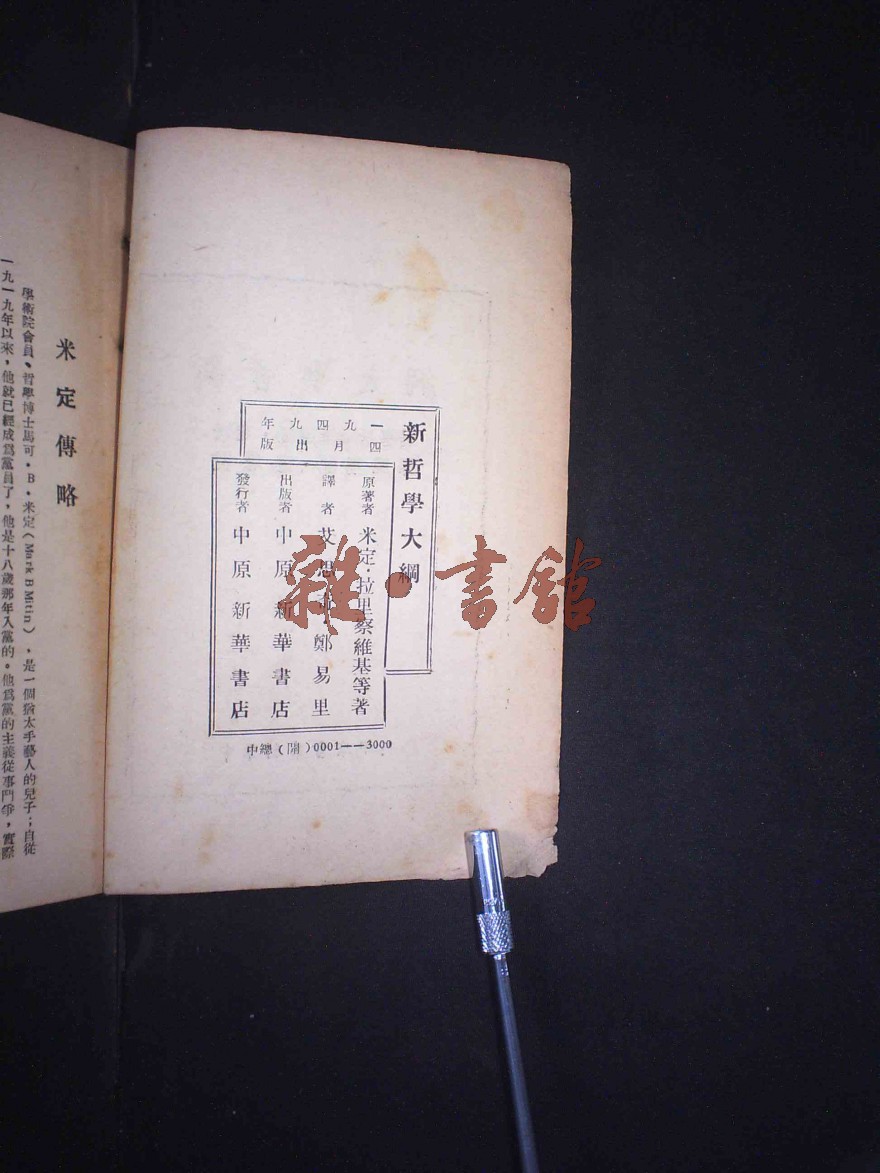 新哲學大綱
一九四九年
四月出版
原著者 米定·拉里察維基等著
譯者 艾思奇 鄭易里
出版者 中原新華書店
發行者 中原新華書店
中總(開)0001——3000
雜·書館
米定傳略
學術院會員、哲學博士馬可·B·米定(Mark B Mitin),是一個猶太手藝人的兒子;自從
一九一九年以來,他就已經成爲黨員了,他是十八歲那年入黨的。他爲黨的主義從事鬥爭,實際